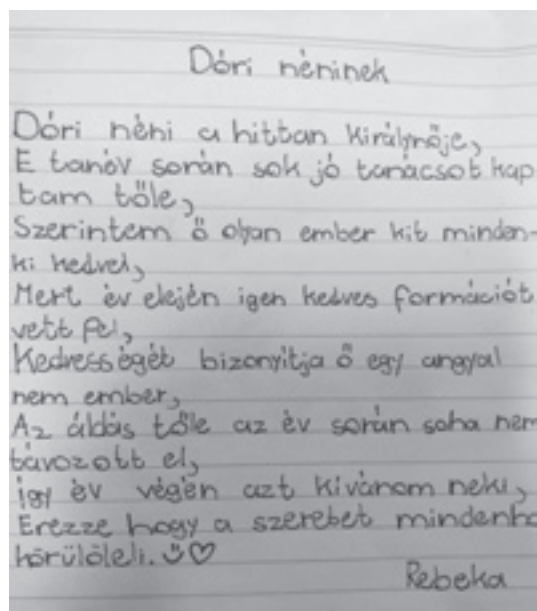 Dóri néninek
Dóri néni a hittan királynője,
E tanév során sok jó tanácsot kap
tam tőle,
Szerintem ő olyan ember kit minden-
ki kedvel,
Mert év elején igen kedves formációt
vett fel,
Kedvességét bizonyítja ő egy angyal
nem ember,
Az áldás tőle az év során soha nem
távozott el,
így év végén azt kívánom neki,
Érezze hogy a szeretet mindenho
körülöleli. ☺♡
Rebeka